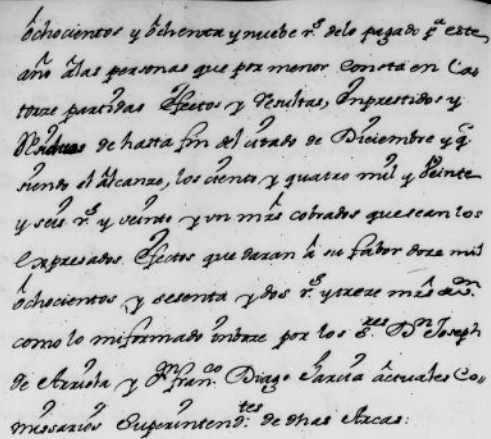 ôchocientos y ôchenta y nuebe r.^s delo pagado p.^a este
año âlas personas que por menor Consta en Ca
torze partidas Efectos y Resultas, Enprestidos y
de hasta fin del citado de Diciembre y q.^e
siendo el âlcanze, los ciento y quatro mil y Veinte
y seis r.^s y veinte y un mrs cobrados que sean los
expresados Efectos quedaran â su fabor doze mil
ôchocientos y sesenta y dos r.^s y treze mrs de v.^on
como lo informado entre por los S.^res D.^n Joseph
de Arriola y D.^n Fran.^co Diago Garcia âctuales Co
missarios Superintend.^tes de dhas Arcas: